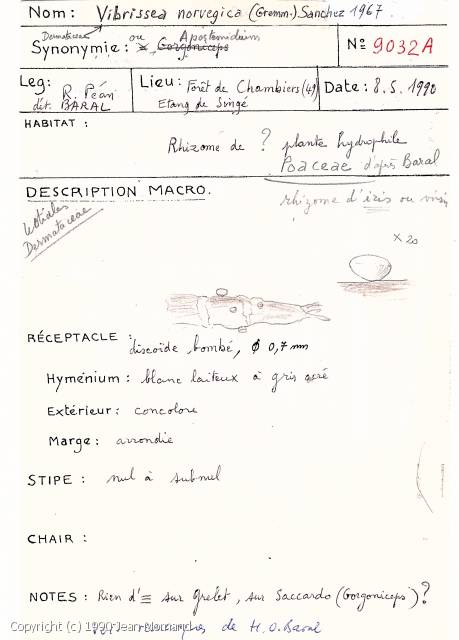 Nom : Vibrissea norvegica (Gremm.) Sanchez 1967
Dermateaceae ou Apostemidium
Synonymie : Gorgoniceps
Nº 9032A
Leg: R. Péan
dét. BARAL
Lieu : Forêt de Chambiers (49)
Etang de Singé
Date : 8.5.1990
HABITAT :
Rhizome de ? plante hydrophile
Poaceae d'après Baral
DESCRIPTION MACRO.
rhizome d'iris ou
Dermataceae
x 20
RÉCEPTACLE : discoïde, bombé, ϕ 0,7 mm
Hyménium : blanc laiteux à gris
Extérieur : concolore
Marge : arrondie
STIPE : nul à subnul
CHAIR :
NOTES : Rien d'≡ sur Grelet, sur Saccardo (Gorgoniceps) ?
Voir remarques de H.O. Baral
Copyright (c) 1990 Jean Mornand